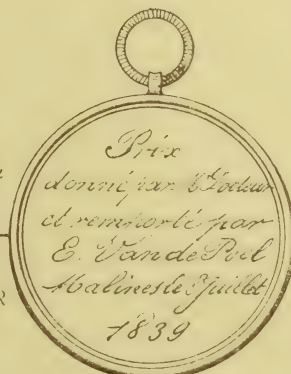 Prix
donné par Docteur
et remporté par
E. Van de Poel
Malines le Juillet
1839
R